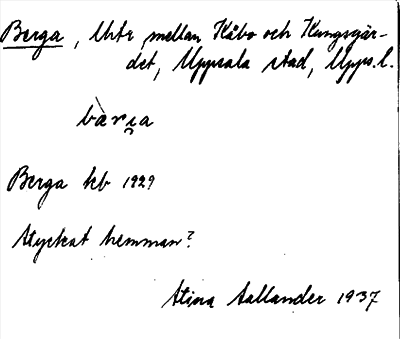 Berga, Utr. mellan Kåbo och Kungsgär-
det, Uppsala stad, Upps. l.
bàri̯a
Berga kb 1929
Styckat hemman?
Stina Sallander 1937